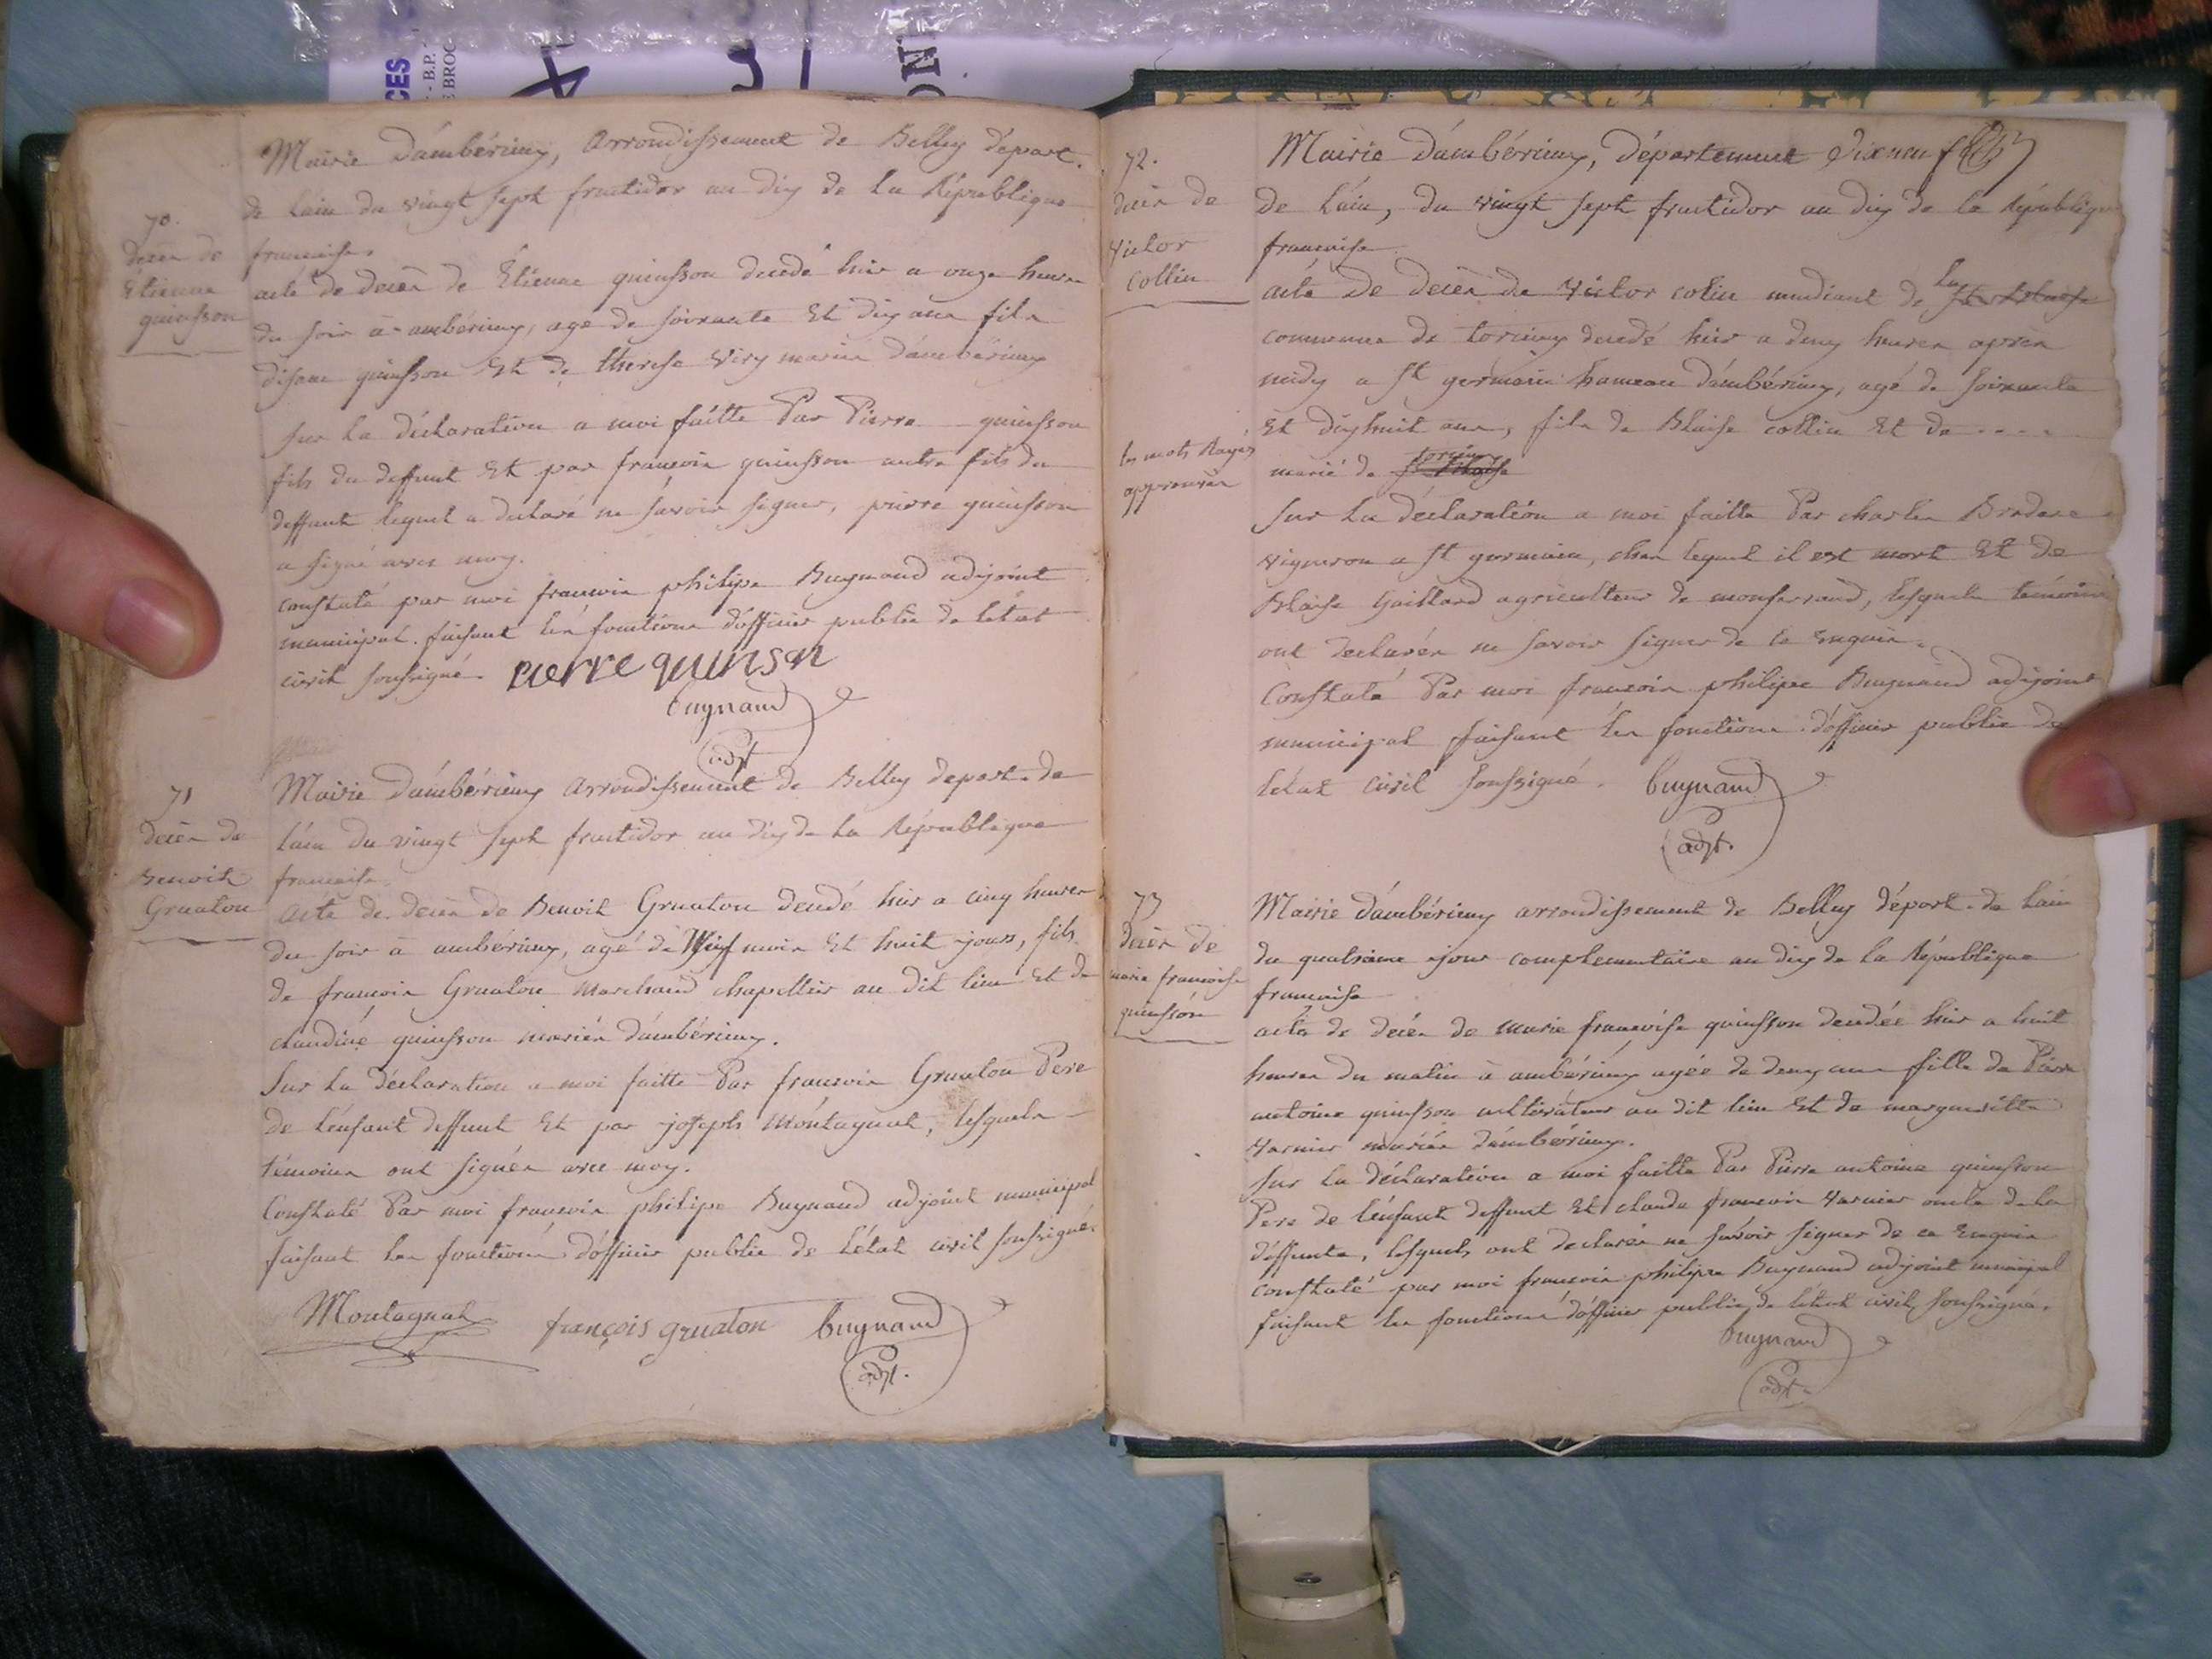 CES
- B.P.
E BROC
ON
Mairie D'ambérieux, arrondissement de Belley départ.
de l'ain du vingt sept fructidor an dix de la République
francaise.
70.
décès de
Étienne
quinsson
acte de décès de Étienne quinsson decédé hier a onze heures
du soir à ambérieux, age de soixante Et dix ans fils
quinsson Et de therese Viry mariés d'ambérieux
sur la déclaration a moi faitte Par Pierre quinsson
fils du deffunt Et par francois quinsson autre fils du
deffunt lequel a declaré ne savoir signer, pierre quinsson
a signé avec moy.
constaté par moi francois philipe Bugnaud adjoint
municipal faisant les fonctions d'officier public de l'état
civil soussigné. pierre quinson
bugnaud
adjt
71
décès de
Benoit
Gruaton
Mairie d'ambérieux arrondissement de Belley depart. de
l'ain du vingt sept fructidor an dix de la République
francaise.
acte de décès de Benoit Gruaton decédé hier a cinq heures
du soir à ambérieux, agé de mois Et huit jours, fils
de francois Gruaton Marchand chapellier au dit lieu Et de
claudine quinsson mariés d'ambérieux.
Sur la déclaration a moi faitte Par francois Gruaton Pere
de l'enfant deffunt Et par joseph Montagnat, lesquels
témoins ont signés avec moy.
Constaté Par moi francois philipe Bugnaud adjoint municipal
faisant les fonctions d'officier public de l'état civil soussigné.
Montagnat françois gruaton bugnaud
adjt.
72.
décès de
victor
collin
Mairie d'ambérieux, département
de l'ain, du vingt sept fructidor an dix de la République
francaise.
acte de décès de victor colin mendiant de la
commune de torcieux decédé hier a deux heures après
midy a St germain hameau d'ambérieux, agé de soixante
Et dix huit ans, fils de Blaise collin Et de ....
les mots Rayés
approuvés
marié de torcieux
Sur la déclaration a moi faitte Par charles
vigneron a St germain, chez lequel il est mort Et de
Blaise Gaillard agriculteur de monferrand, lesquels témoins
ont declarés ne savoir signer de ce Enquis.
Constaté Par moi francois philipe Bugnaud adjoint
municipal faisant les fonctions d'officier public de
l'état civil soussigné. bugnaud
adjt.
73
décès de
marie francoise
quinsson
Mairie d'ambérieux arrondissement de Belley départ. de l'ain
du quatrième jour complementaire an dix de la République
francaise
acte de décés de marie francoise quinsson decédée hier a huit
heures du matin à ambérieux agée de deux ans fille de Pierre
antoine quinsson cultivateur au dit lieu Et de margueritte
varnier mariés d'ambérieux.
sur la déclaration a moi faitte Par Pierre antoine quinsson
Pere de l'enfant deffunt Et claude francois varnier oncle de la
déffunte, lesquels ont declarés ne savoir signer de ce Enquis
constaté par moi francois philipe Bugnaud adjoint municipal
faisant les fonctions d'officier public de l'état civil, soussigné.
bugnaud
adjt.